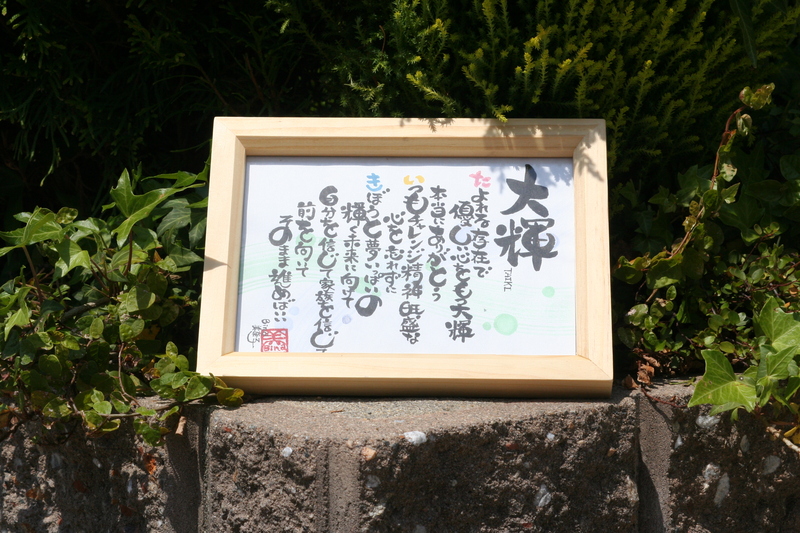 大輝
TAIKI
たよれる存在で
優しい心をもつ大輝
本当にありがとう
いつもチャレンジ精神旺盛な
心を忘れずに
きぼうと夢いっぱいの
輝く未来に向けて
自分を信じて家族を信じて
前を向いて
そのまま進めばいい